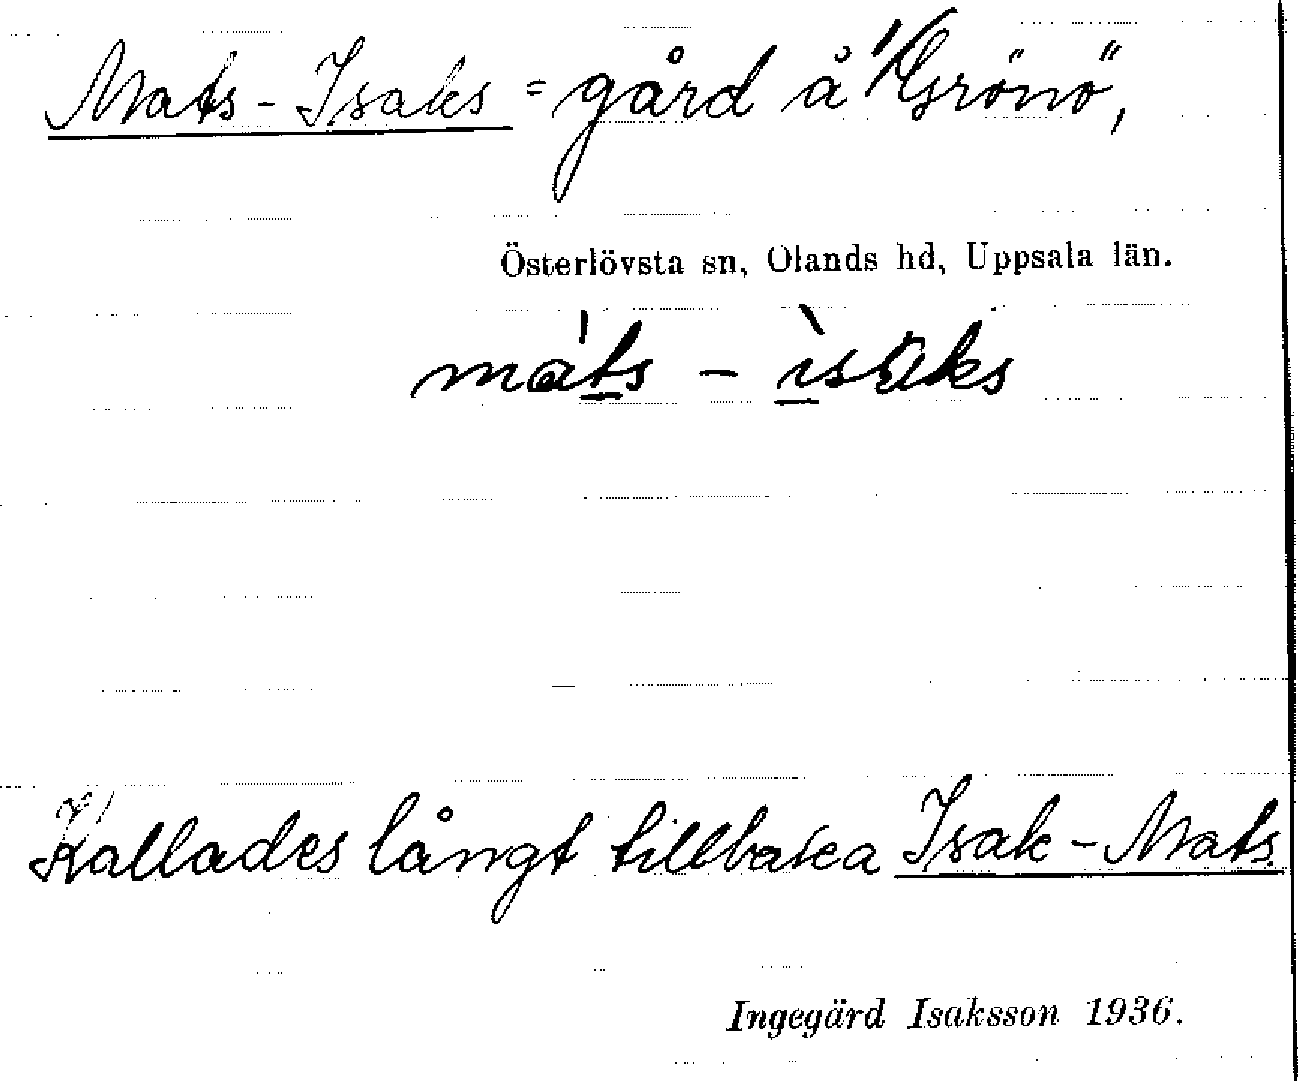 Mats-Isaks = gård å Grönö,
Österlövsta sn, Olands hd, Uppsala län.
máts - ìsaks
Kallades långt tillbaka Isak-Mats
Ingegärd Isaksson 1936.